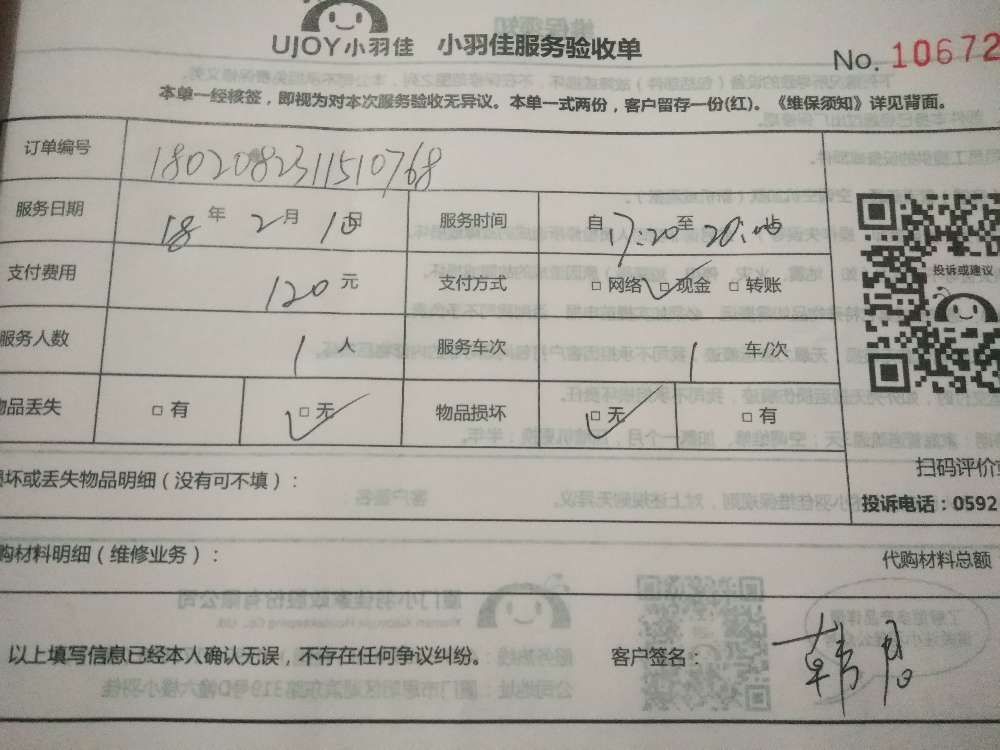 UJOY小羽佳 小羽佳服务验收单
No. 10672
本单一经核签，即视为对本次服务验收无异议。本单一式两份，客户留存一份(红)。《维保须知》详见背面。
订单编号 1802082311510768
服务日期 18 年 2 月 日 服务时间 自 17:20 至 20:
支付费用 120 元 支付方式 □ 网络 □ 现金 □ 转账
投诉或建议
服务人数 1 人 服务车次 1 车/次
物品丢失 □ 有 □ 无 物品损坏 □ 无 □ 有
损坏或丢失物品明细（没有可不填）：
扫码评价
投诉电话：0592
购材料明细（维修业务）：
代购材料总额
以上填写信息已经本人确认无误，不存在任何争议纠纷。 客户签名：